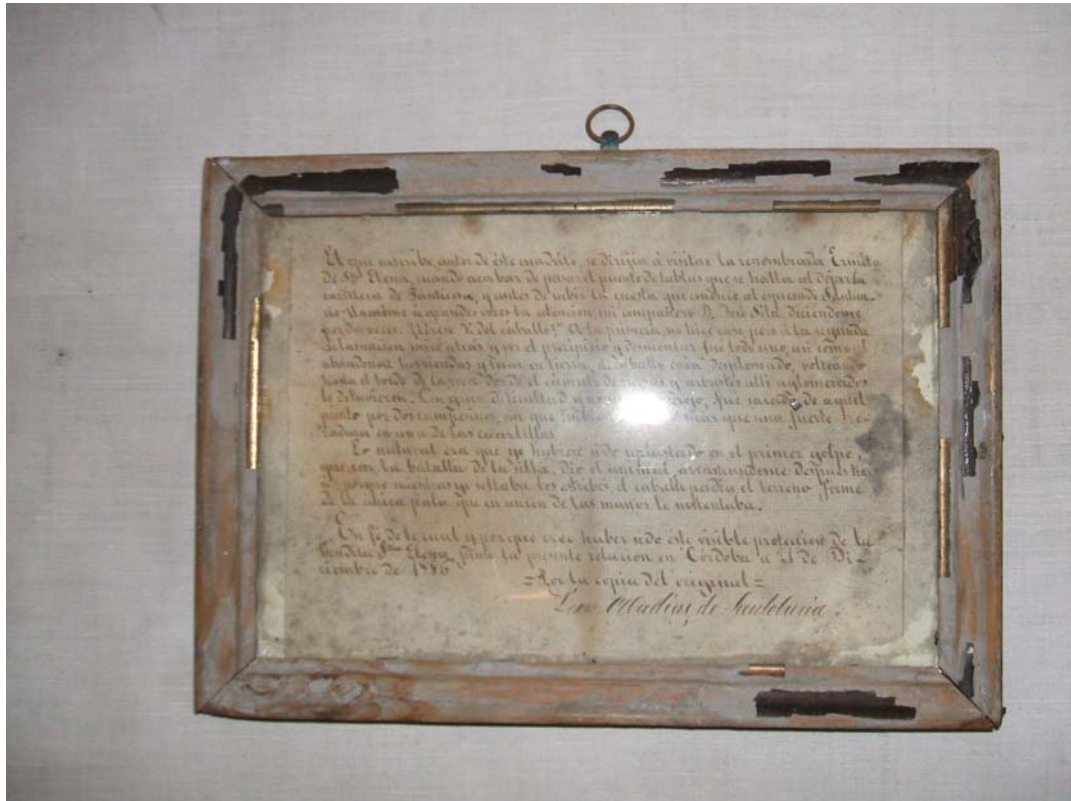 El que suscribe, autor de éste cuadrito, se dirijia á visitar la renombrada Ermita
de Sta Elena, cuando acabar de pasar el puente de tablas que se halla al dejar la
carretera de Panticosa, y antes de subir la cuesta que conduce al espresado Santua-
rio llamóme á grandes voces la atencion, mi compañero D. José Sila diciéndome
por dos veces. Tírese V. del caballo!" A la primera no hice caso pero á la segunda
esclamacion miré atras y ver el precipicio y desmontar fué todo uno, asi como
abandonar las riendas y caer en tierra, el caballo desplomado, volteando
hasta el borde de la donde el cúmulo de y arbustos alli aglomerados
lo detuvieron. Con gran dificultad y fué sacado de aquel
punto por dos campesinos sin que mas que una fuerte
en una de las cuartillas.
Lo natural era que yo hubiese sido aplastado en el primer golpe
que, con la batalla de la silla, dió el animal, arrastrandome despues
porque mientras yo soltaba los estribos, el caballo perdia el terreno firme
de la única pata que en union de las manos le sustentaba.
En fé de lo cual y porque creo haber sido esta visible proteccion de la
bendita Sta Elena, la presente relacion en Córdoba á 21 de Di-
ciembre de 1886
=Por la copia del original=
Leon Abadias de Santolaria.